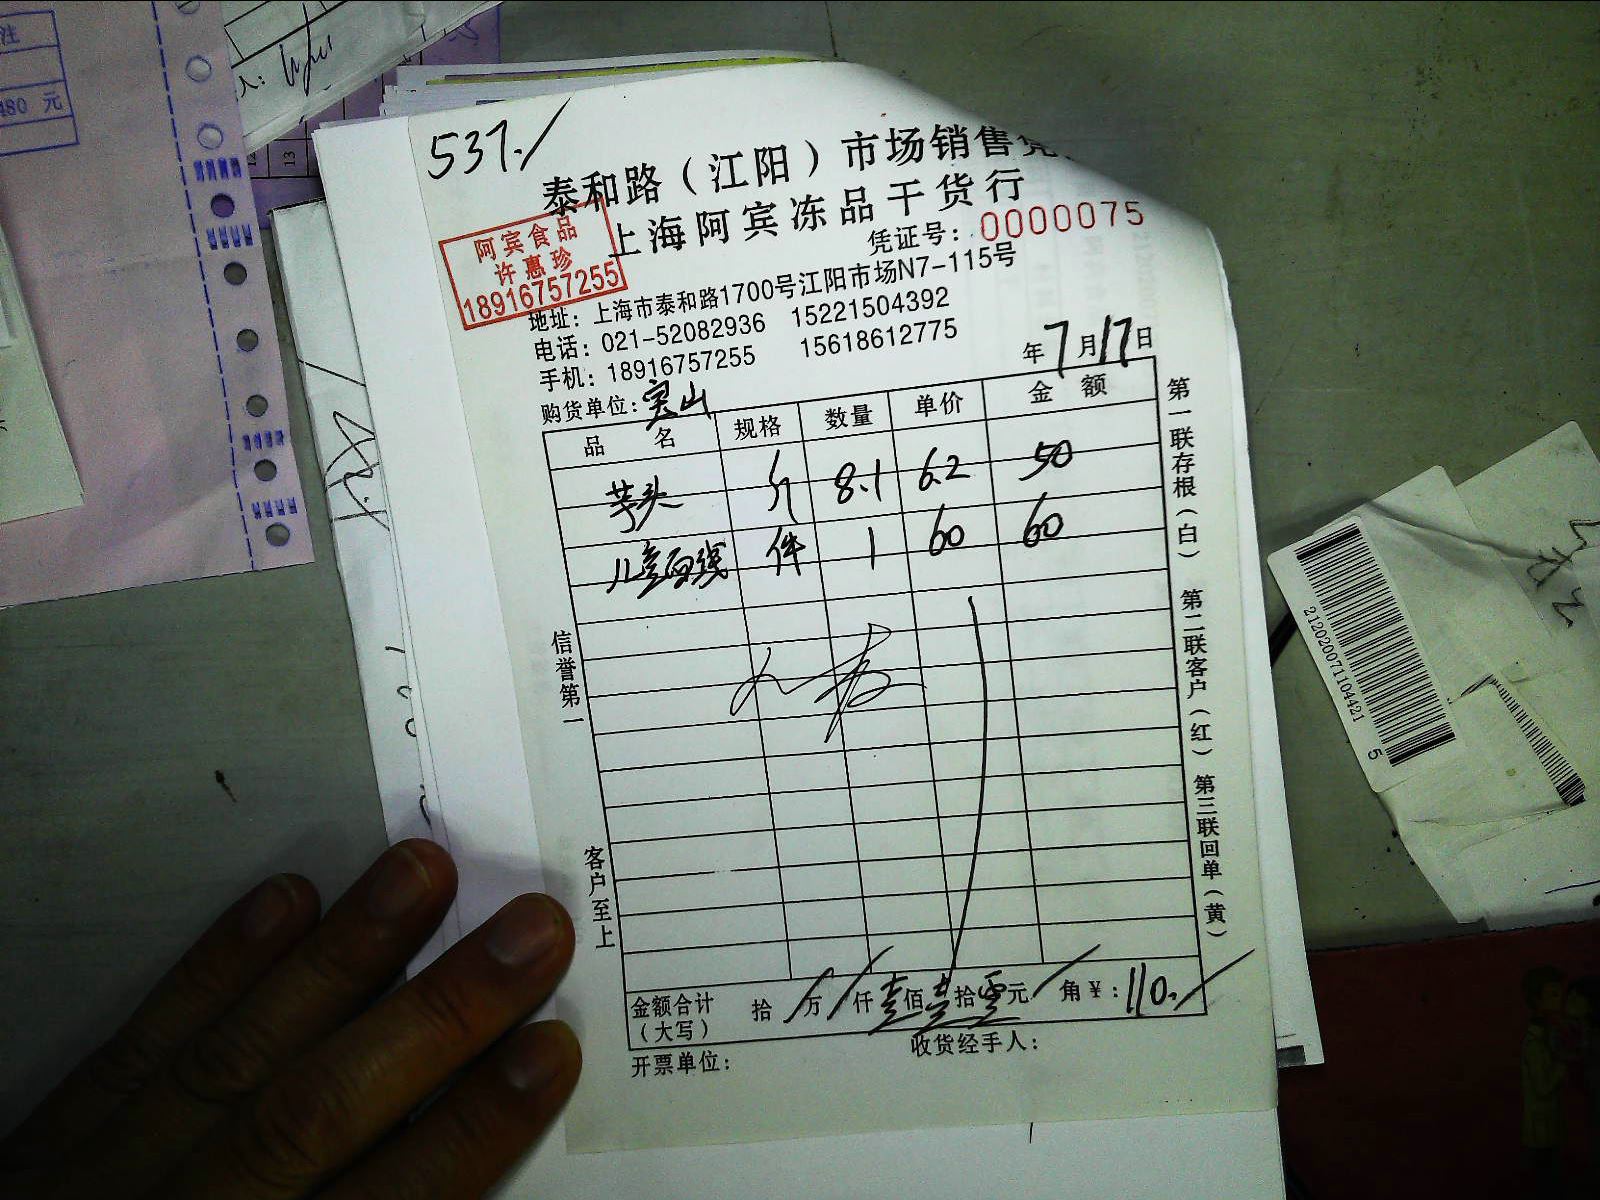 注
480 元
12
13
537./
泰和路（江阳）市场销售凭
上海阿宾冻品干货行
阿宾食品
许惠珍
18916757255
凭证号：0000075
地址：上海市泰和路1700号江阳市场N7-115号
电话：021-52082936 15221504392
手机：18916757255 15618612775
年 7 月 17 日
购货单位：宝山
品名 规格 数量 单价 金额
芋头 斤 8.1 6.2 50
儿童面线 件 1 60 60
信誉第一
客户至上
第一联存根（白） 第二联客户（红） 第三联回单（黄）
金额合计（大写） 拾 / 万 / 仟 壹 佰 壹 拾 零 元 / 角 ¥：110./
开票单位： 收货经手人：
212020071104421
5